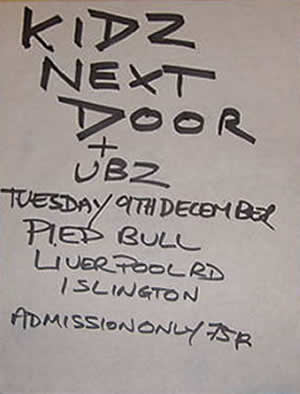 KIDZ
NEXT
DOOR
+
UBZ
TUESDAY 9TH DECEMBER
PIED BULL
LIVERPOOL RD
ISLINGTON
ADMISSION ONLY 75P